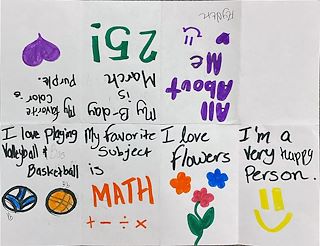 Ayden
All
About
Me
My B-day
is
March
25!
My favorite
Color is
Purple.
I love Playing
Volleyball &
Basketball
My favorite
Subject
is
MATH
+ - ÷ ×
I love
flowers
I'm a
very happy
Person.